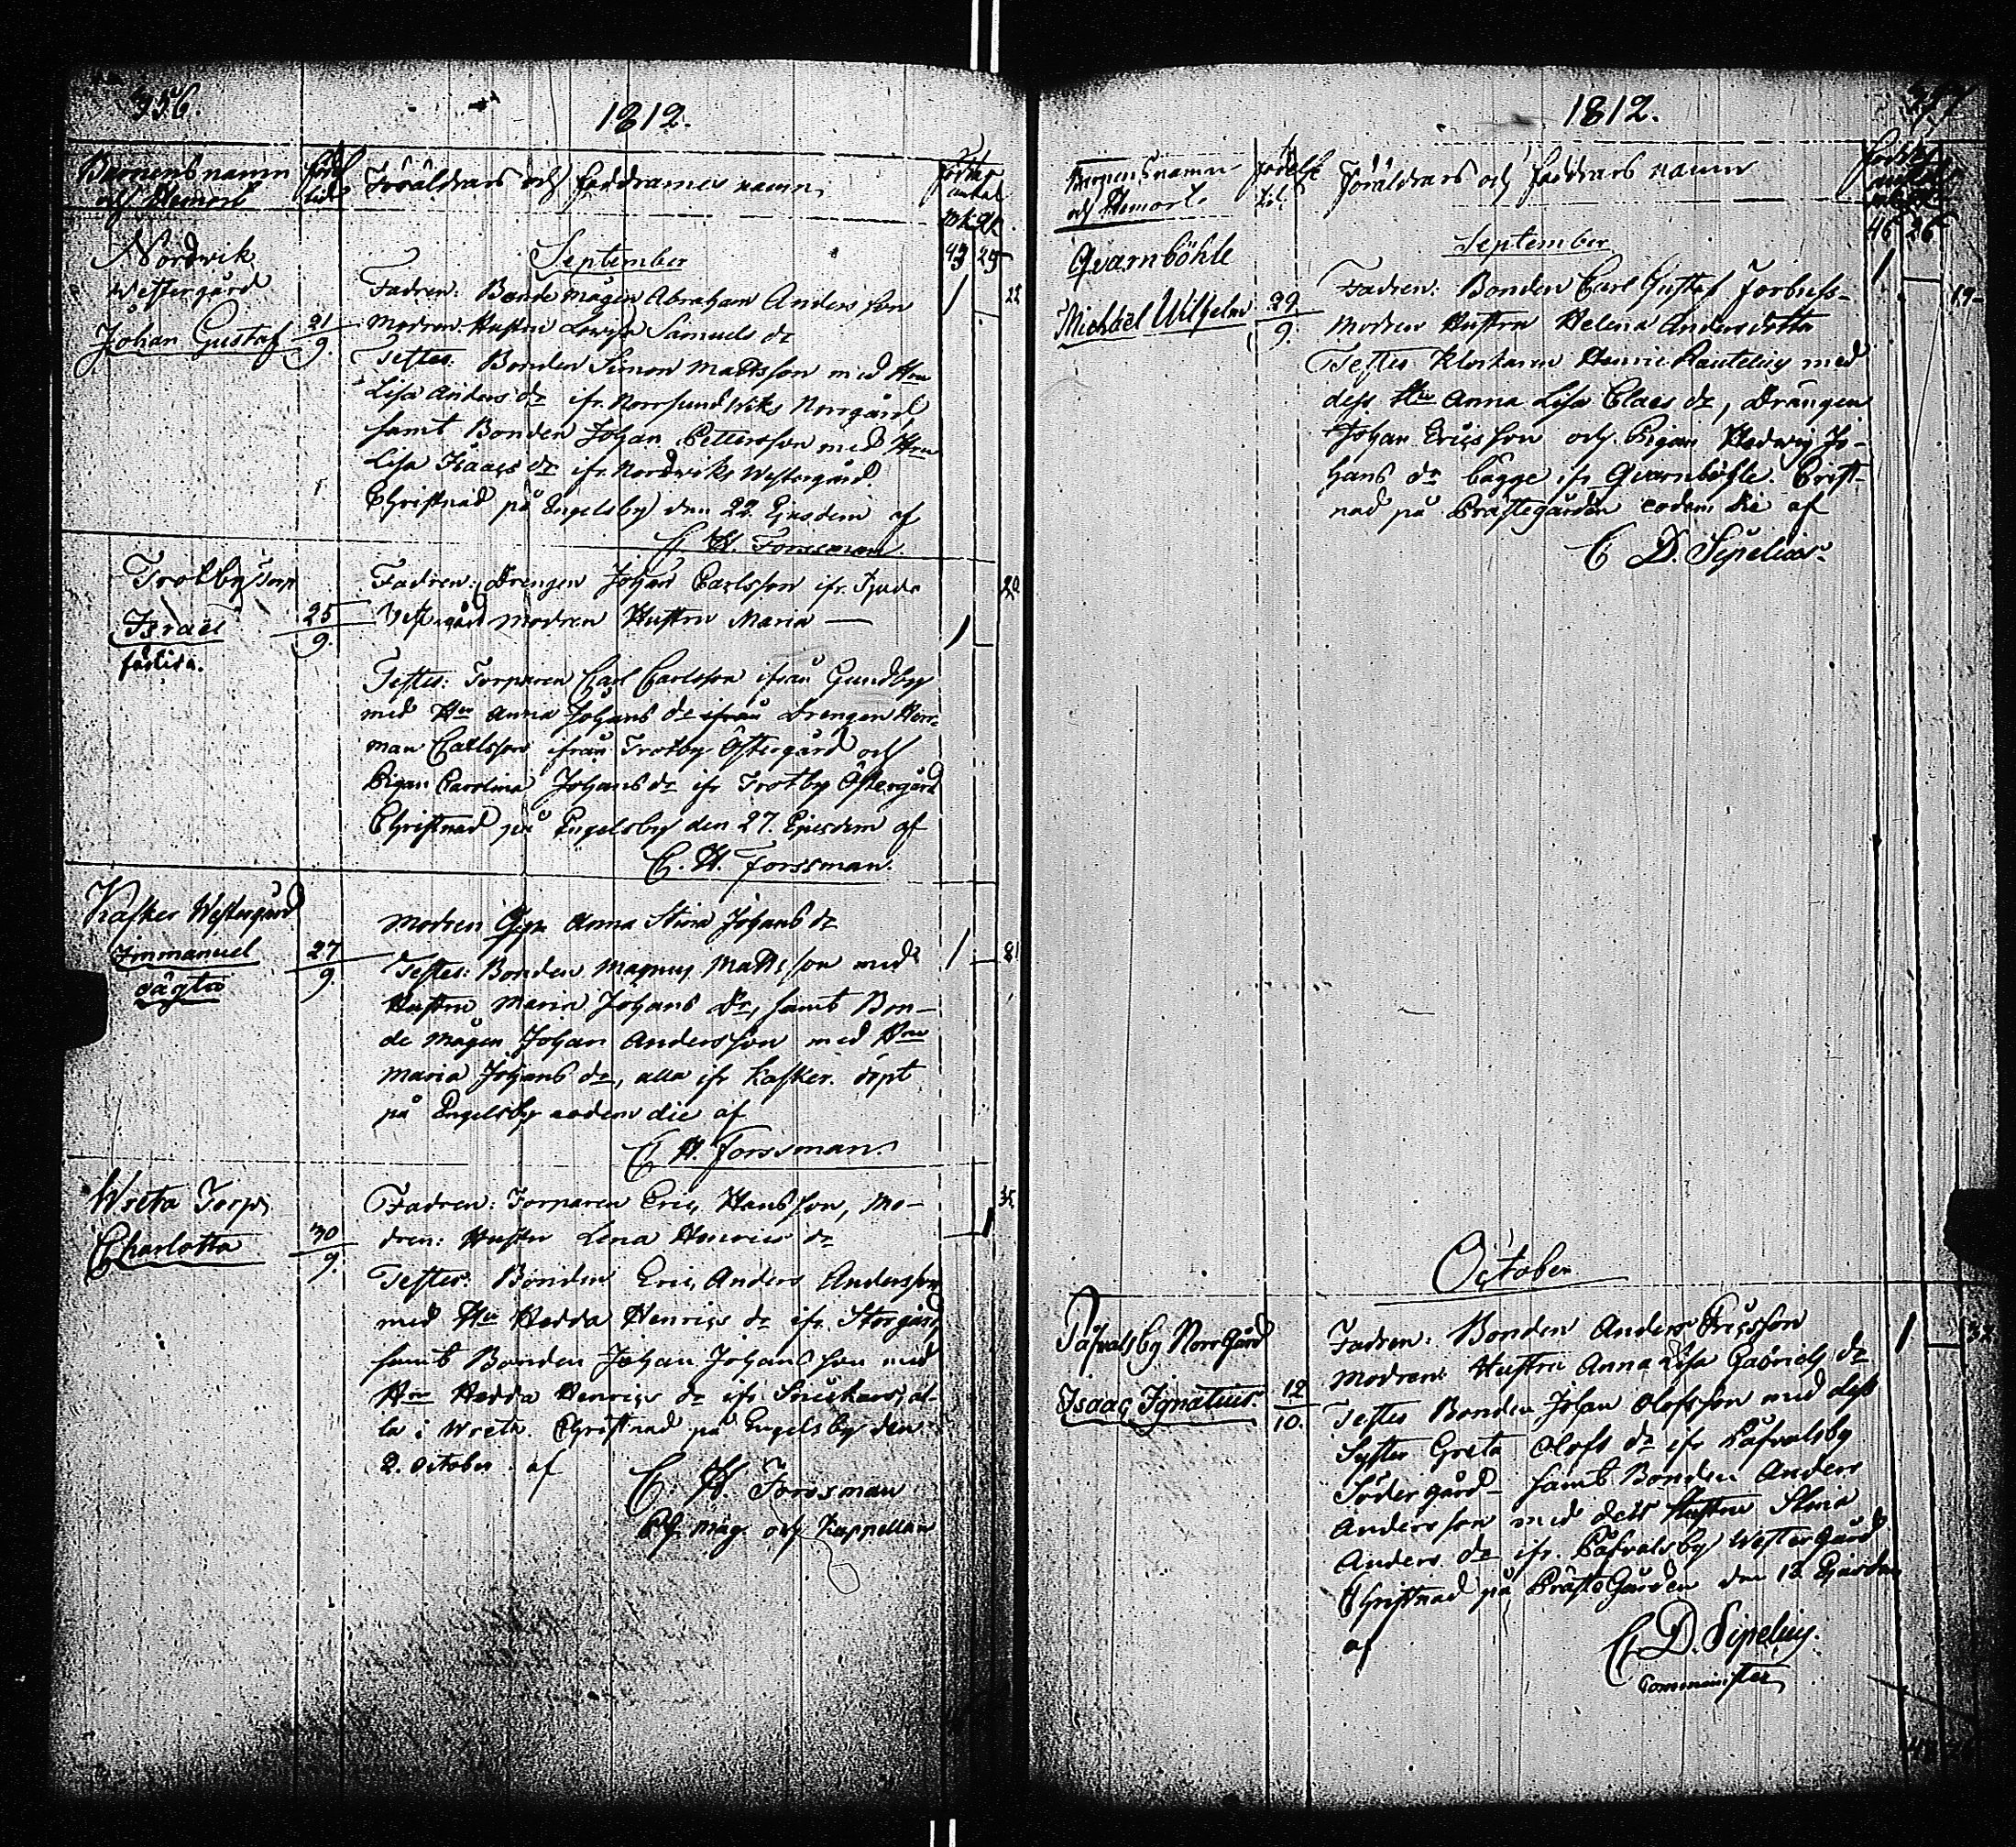 356.
1812.
Barnens namn
och Hemort
Föräldrars och faddrarnes namn
Nordvik
Westergård
Johan Gustaf 21/9.
September
43 25
Fadren: Bonde Mågen Abraham Andersson
Modren: Hustru Lovisa Samuels dr
Testes: Bonden Simon Mattsson med Hru
Lisa Anders dr ifr. Norrsundviks Norrgård,
samt Bonden Johan Pettersson med Hru
Lisa Isaacs dr ifr. Nordviks Westergård.
Christnad på Engelsby den 22 Ejusdem af
C. H. Forssman.
22
Trotby Torp
Israel 25/9.
Fadren: Drengen Johan Carlsson ifr.
Modren Hustru Maria —
Testes: Torparen Carl Carlsson ifrån Gundby
med Hru Anna Johans dr ifrån Drengen Herr-
man Carlsson ifrån Trotby Östergård och
Pigan Carolina Johans dr ifr Trotby Östergård
Christnad på Engelsby den 27. Ejusdem af
C. H. Forssman.
Kasker Westergård
Immanuel 27/9.
oägta
Modren Anna Stina Johans dr
Testes: Bonden Magnus Mattsson med
Hustru Maria Johans dr, samt Bon-
de Mågen Johan Andersson med Hru
Maria Johans dr, alla ifr Kasker. döpt
på Engelsby eodem die af
C. H. Forssman.
Wreta Torp
Charlotta 30/9.
Fadren: Torparen Eric Hansson, Mo-
dren: Hustru Lena Henrics dr
Testes: Bonden Eric Anders Andersson
med Hru Hedda Henrics dr ifr. Storgård,
samt Bonden Johan Johansson med
Hru Hedda Henrics dr ifr. al-
la i Wreta. Christnad på Engelsby den
2. October af
C. H. Forssman
Ph. Mag. och Kappellan
35
1812.
Barnens namn
och Hemort
Föräldrars och faddrars namn
46 26
Qvarnböhle
Michael Wilhelm 29/9.
September
Fadren: Bonden Carl Gustaf
Modren Hustru Helena Andersdotter
Testes Klockaren Henric Rautelius med
dess Hru Anna Lisa Claes dr, Drängen
Johan Ericsson och Pigan Hedwig Jo-
hans dr bägge ifr Qvarnböhle. Crist-
nad på Prästegården eodem die af
C D. Sipelius.
19
October
Påfvalsby Norrgård
Isaac Ignatius. 12/10.
Fadren: Bonden Anders Ericsson
Modren: Hustru Anna Lisa Gabriels dr
Testes Bonden Johan Olofsson med dess
Syster Greta Olofs dr ifr Påfvalsby
Södergård – samt Bonden Anders
Andersson med dess Hustru Stina
Anders dr ifr. Påfvalsby Westergård
Christnad på PrästeGården den 12 Ejusdem
af
C D. Sipelius.
Comminister